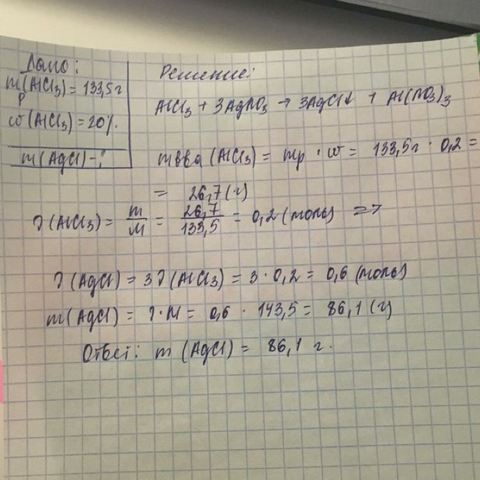 Дано:
mр(AlCl3) = 133,5 г
ω(AlCl3) = 20%
m(AgCl) - ?
Решение:
AlCl3 + 3AgNO3 → 3AgCl↓ + Al(NO3)3
mвва (AlCl3) = mр · ω = 133,5г · 0,2 =
= 26,7 (г)
ν(AlCl3) = m/M = 26,7/133,5 = 0,2 (моль) =>
ν(AgCl) = 3ν(AlCl3) = 3 · 0,2 = 0,6 (моль)
m(AgCl) = ν · M = 0,6 · 143,5 = 86,1 (г)
Ответ: m (AgCl) = 86,1 г.